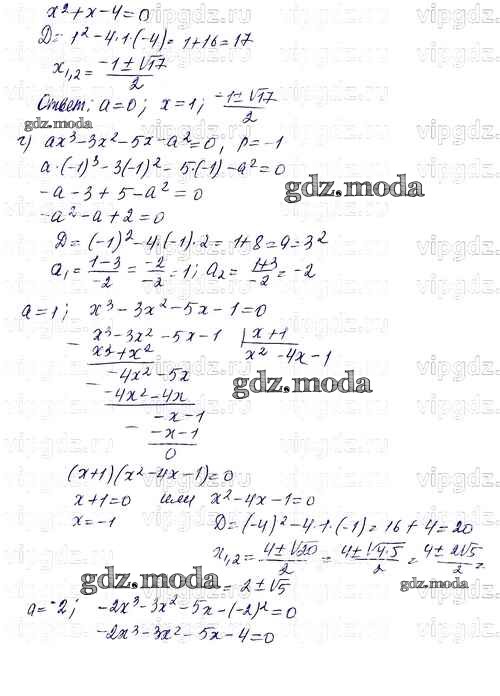 x²+x-4=0
D= 1²-4·1·(-4)= 1+16=17
x₁,₂= (-1±√17)/2
Ответ: a=0; x=1; (-1±√17)/2
gdz.moda
г) ax³-3x²-5x-a²=0, p=-1
a·(-1)³-3(-1)²-5·(-1)-a²=0
-a-3+5-a²=0
gdz.moda
-a²-a+2=0
D=(-1)²-4·(-1)·2=1+8=9=3²
a₁= (1-3)/-2 = -2/-2 =1; a₂= (1+3)/-2 =-2
a=1; x³-3x²-5x-1=0
- x³-3x²-5x-1 | x+1
x³+x² x²-4x-1
- -4x²-5x
-4x²-4x
gdz.moda
- -x-1
-x-1
0
(x+1)(x²-4x-1)=0
x+1=0 или x²-4x-1=0
x=-1 D=(-4)²-4·1·(-1)=16+4=20
x₁,₂= (4±√20)/2 = (4±√4·5)/2 = (4±2√5)/2 =
gdz.moda
= 2±√5
a=-2; -2x³-3x²-5x-(-2)²=0
-2x³-3x²-5x-4=0
vipgdz.ru